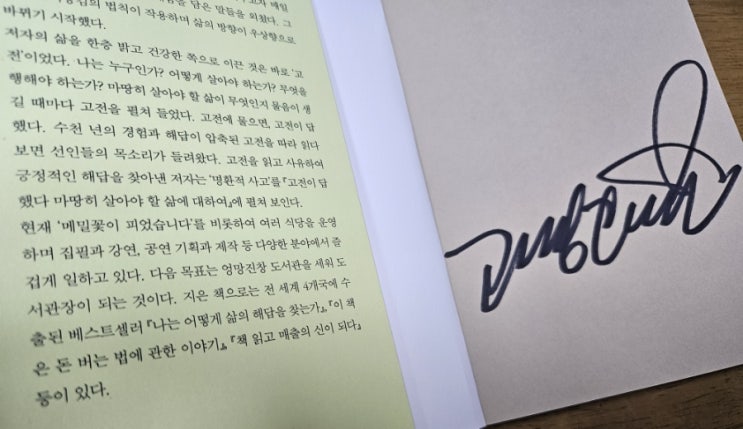 담은 말들을 외쳤다. 그
법칙이 작용하며 삶의 방향이 우상향으로
바뀌기 시작했다.
저자의 삶을 한층 밝고 건강한 쪽으로 이끈 것은 바로 '고
전'이었다. 나는 누구인가? 어떻게 살아야 하는가? 무엇을
행해야 하는가? 마땅히 살아야 할 삶이 무엇인지 물음이 생
길 때마다 고전을 펼쳐 들었다. 고전에 물으면, 고전이 답
했다. 수천 년의 경험과 해답이 압축된 고전을 따라 읽다
보면 선인들의 목소리가 들려왔다. 고전을 읽고 사유하여
긍정적인 해답을 찾아낸 저자는 '명환적 사고'를 『고전이 답
했다 마땅히 살아야 할 삶에 대하여』에 펼쳐 보인다.
현재 '메밀꽃이 피었습니다'를 비롯하여 여러 식당을 운영
하며 집필과 강연, 공연 기획과 제작 등 다양한 분야에서 즐
겁게 일하고 있다. 다음 목표는 엉망진창 도서관을 세워 도
서관장이 되는 것이다. 지은 책으로는 전 세계 4개국에 수
출된 베스트셀러 『나는 어떻게 삶의 해답을 찾는가』, 『이 책
은 돈 버는 법에 관한 이야기』, 『책 읽고 매출의 신이 되다』
등이 있다.